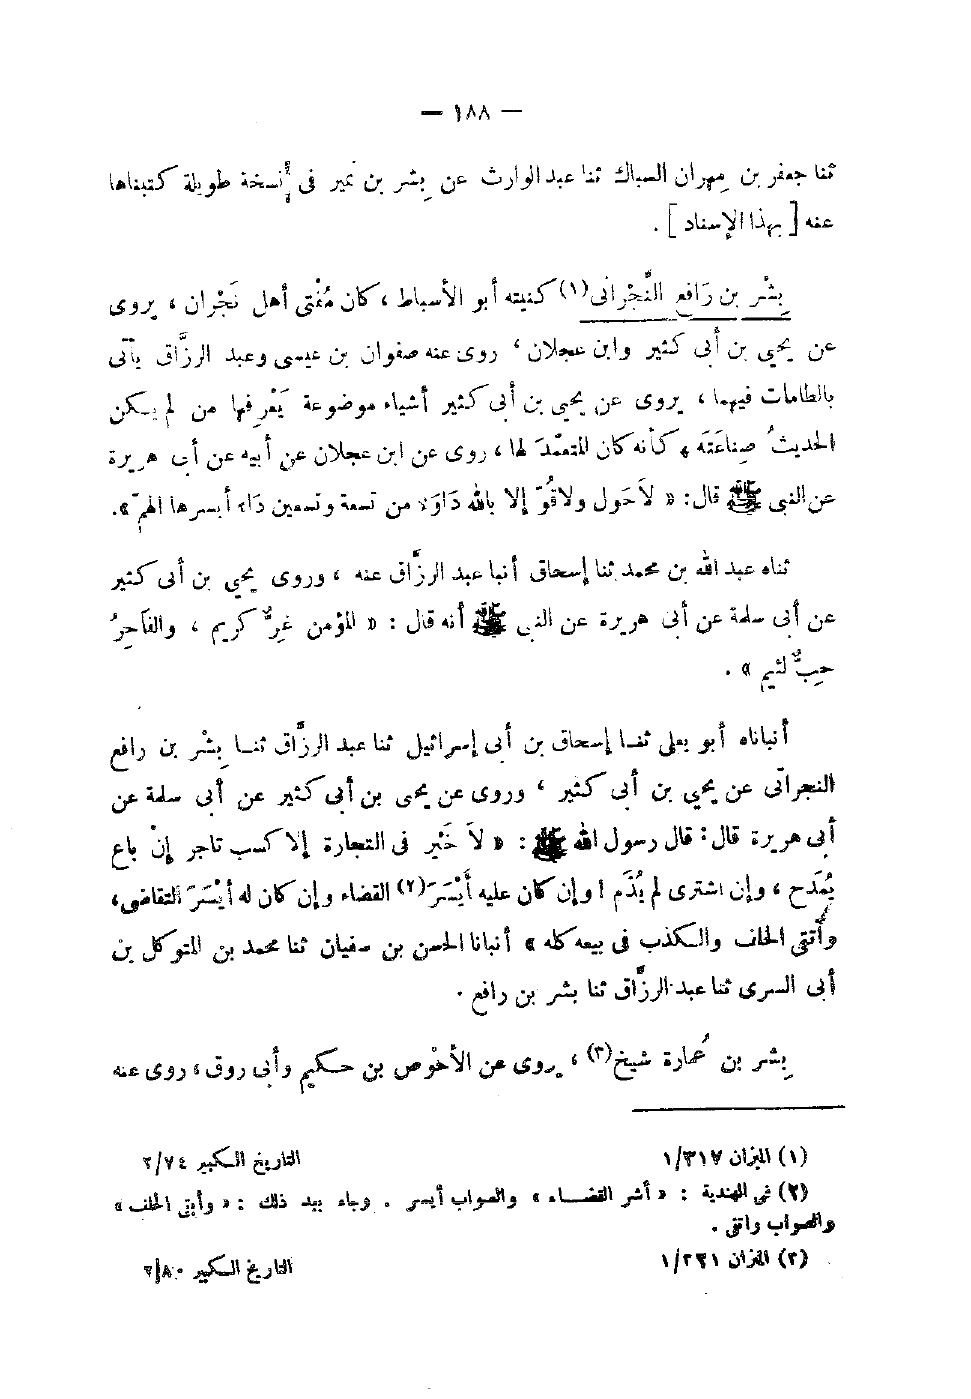 — ١٨٨ —
ثنا جعفر بن مِهران السباك ثنا عبد الوارث عن بِشر بن نمير فى نُسخة طويلة كتبناها
عنه [ بهذا الإسناد ] .
بِشْر بن رَافع النَّجْرانى (١) كنيته أبو الأسباط ، كان مُفْتى أهل نَجْران ، يروى
عن يحيى بن أبى كثير وابن عجلان ، روى عنه صفوان بن عيسى وعبد الرزَّاق يأتى
بالطامات فيهما ، يروى عن يحيى بن أبى كثير أشياء موضوعة يَعْرِفها من لم يكن
الحديثُ صِناعَتَه ، كأنه كان المتعمِّدَ لها ، روى عن ابن عجلان عن أبيه عن أبى هريرة
عن النبى ﷺ قال: « لاَ حَول ولاقُوّ إلا بالله دَاوَاء من تسعة وتسعين دَاء أيسرها الهمّ ».
ثناه عبد الله بن محمد ثنا إسحاق أنبا عبد الرزَّاق عنه ، وروى يحيى بن أبى كثير
عن أبى سلمة عن أبى هريرة عن النبى ﷺ أنه قال : « المؤمن غِرٌّ كريم ، والفاَجِرُ
خِبٌّ لئيم » .
أنباناه أبو يعلى ثنا إسحاق بن أبى إسرائيل ثنا عبد الرزَّاق ثنا بِشْر بن رافع
النجرانى عن يحيى بن أبى كثير ، وروى عن يحيى بن أبى كثير عن أبى سلمة عن
أبى هريرة قال: قال رسول الله ﷺ : « لاَ خَيْر فى التجارة إلا كسب تاجر إنْ باع
يُمدَح ، وإن اشترى لم يُذَم ! وإن كان عليه أيْسَرَ (٢) القضاء وإن كان له أيْسَرَ التقاضى،
وأتقى الحلف والكذب فى بيعه كله » أنبانا الحسن بن سفيان ثنا محمد بن المتوكل بن
أبى السرى ثنا عبد الرزَّاق ثنا بشر بن رافع .
بِشر بن عُمارة شيخ (٣) ، يروى عن الأحْوص بن حكيم وأبى روق ، روى عنه
(١) الميزان ١/٣١٧ التاريخ الكبير ٢/٧٤
(٢) فى الهندية : « أشر القضاء » والصواب أيسر . وجاء بعد ذلك : « وأبقى الحلف »
والصواب واتقى .
(٣) الميزان ١/٣٢١ التاريخ الكبير ٢/٨٠